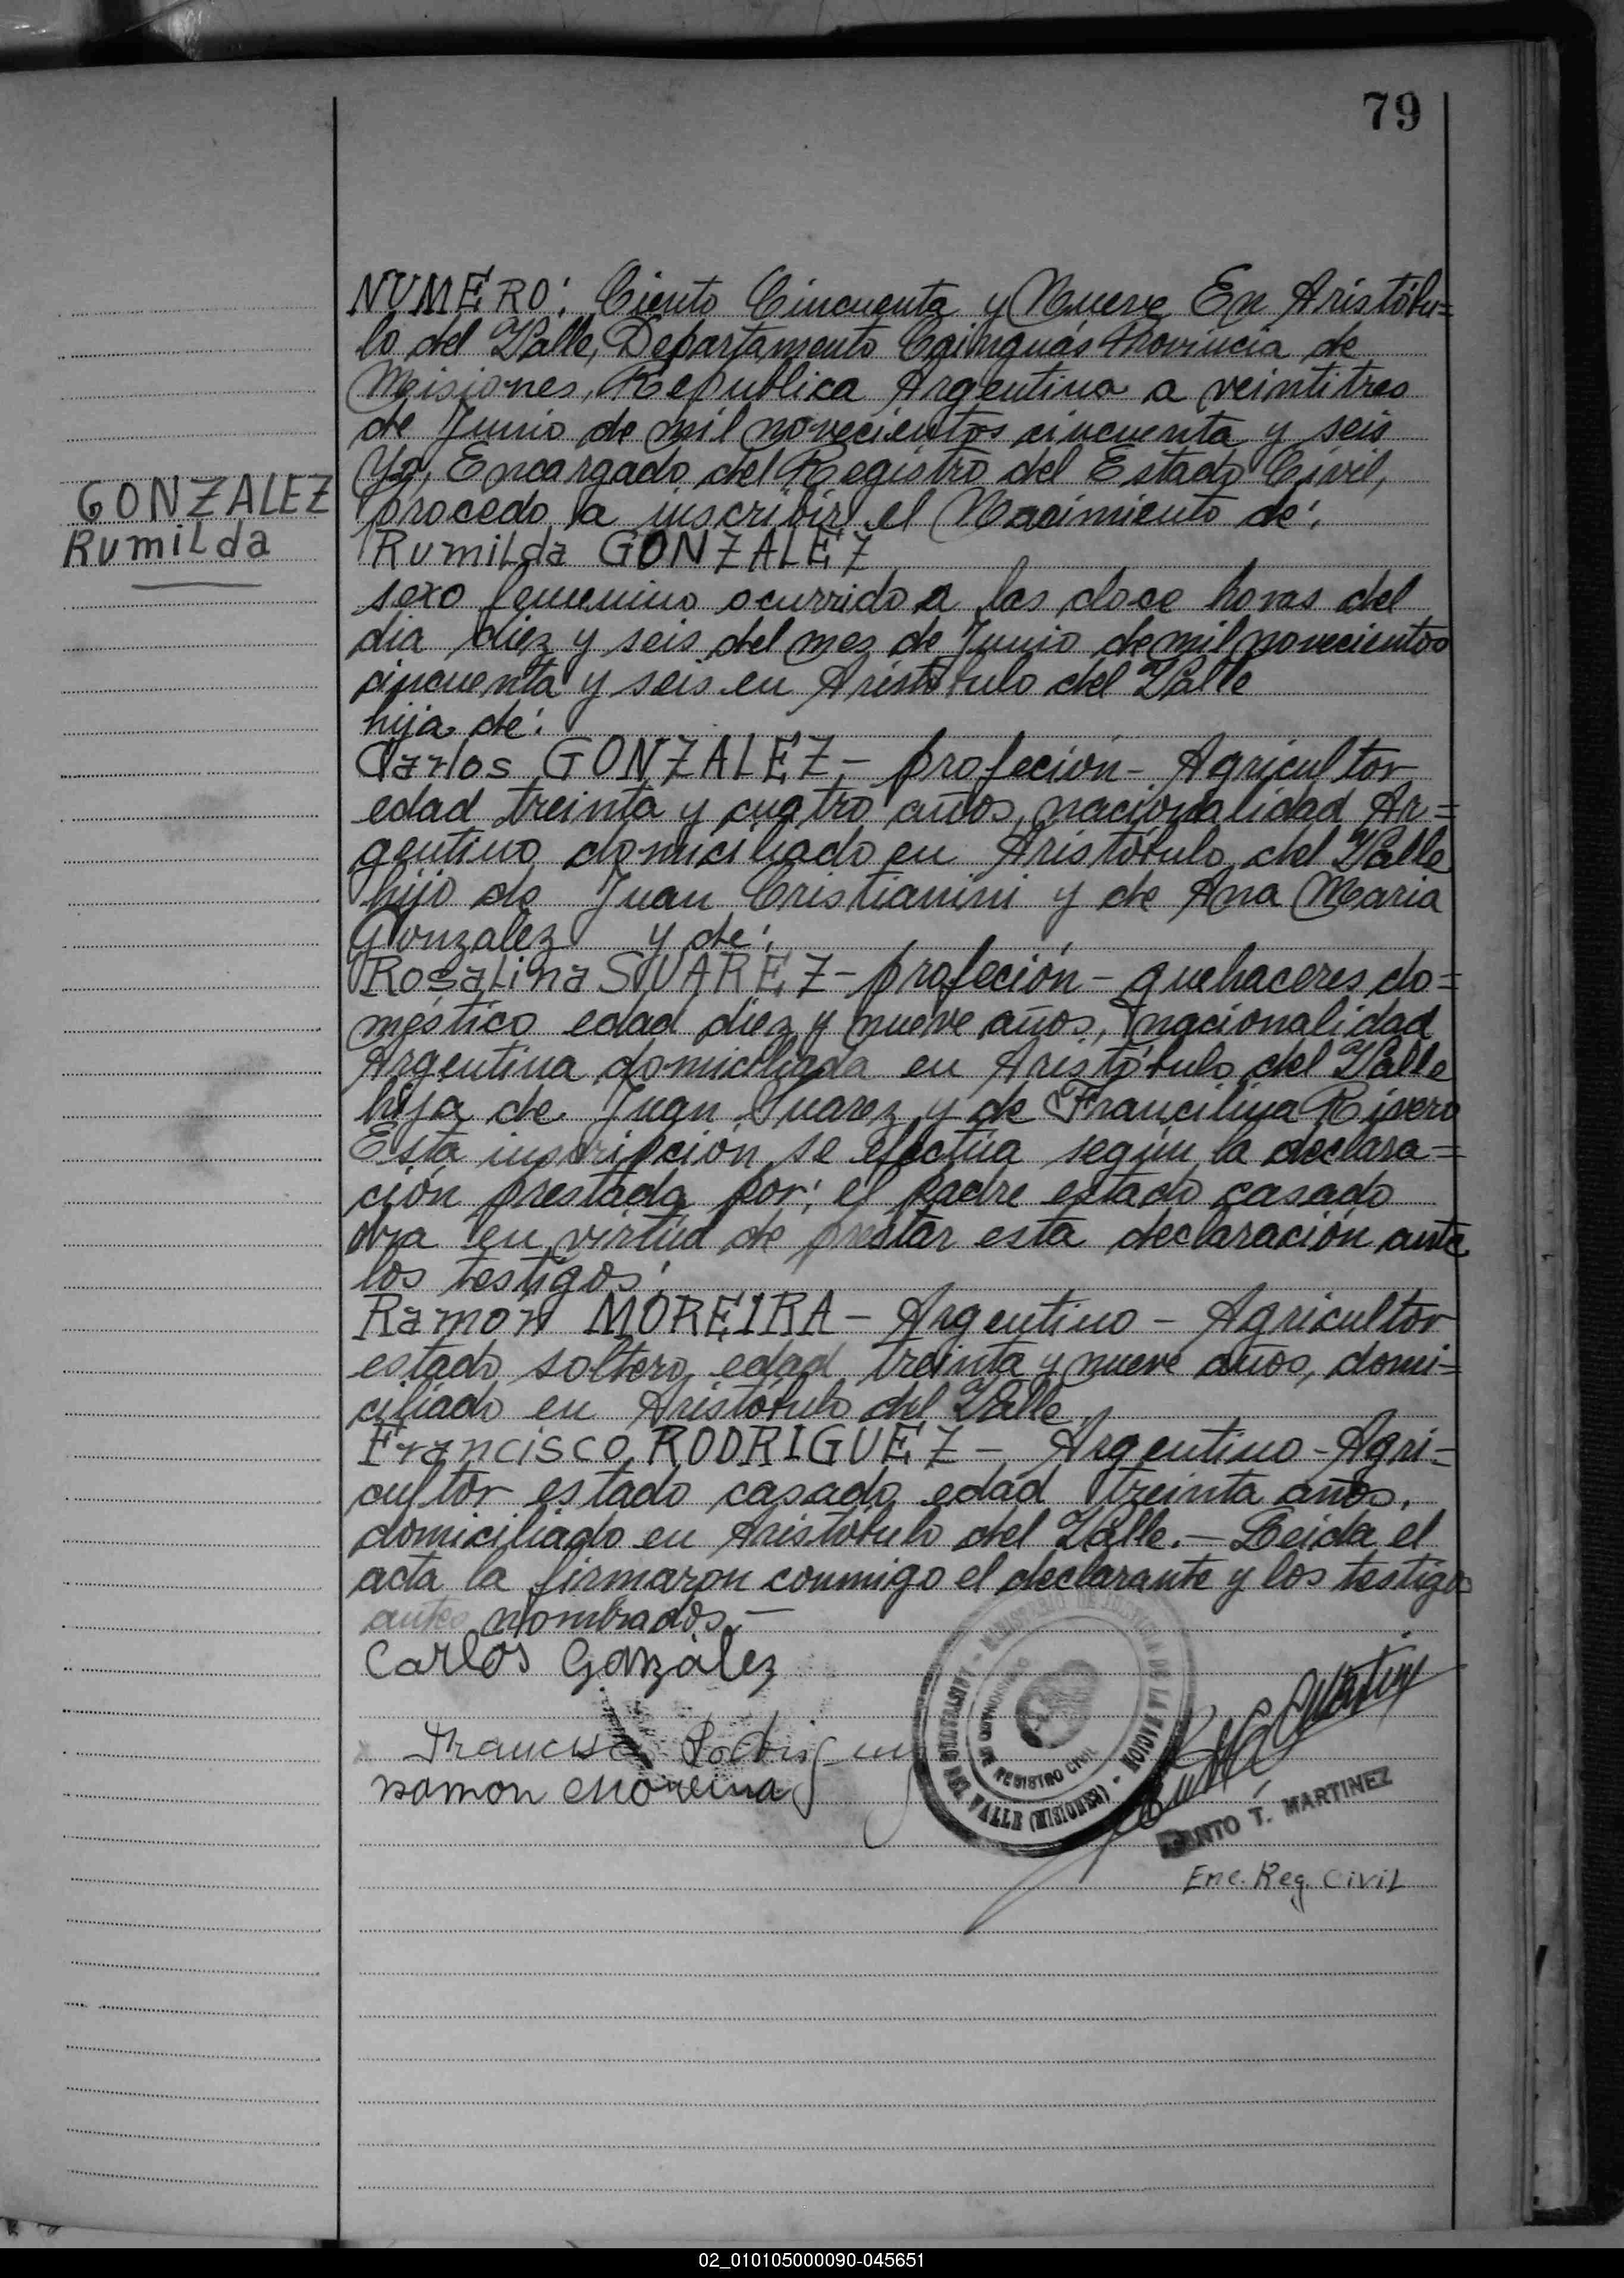 79
NUMERO: Ciento Cincuenta y Nueve En Aristóbu=
lo del Valle, Departamento Cainguás Provincia de
Meisiones, Republica Argentina a veintitres
de Junio de mil novecientos cincuenta y seis
Yo, Encargado del Registro del Estado Civil,
GONZALEZ
procedo a inscribir el Nacimiento de:
Rumilda
Rumilda GONZALEZ
sexo femenino ocurrido a las doce horas del
dia diez y seis del mes de Junio de mil novecientos
cincuenta y seis en Aristóbulo del Valle
hija de:
Carlos GONZALEZ,- profeción- Agricultor
edad treinta y cuatro años, nacionalidad Ar=
gentino domiciliado en Aristóbulo del Valle
hijo de Juan Cristianini y de Ana Maria
Gonzalez y de:
Rosalina SUAREZ- profeción- quehaceres do=
méstico edad diez y nueve años, nacionalidad
Argentina domiciliada en Aristóbulo del Valle
hija de Juan Suarez y de Francilina Rivero
Esta inscripción se efectúa según la declara=
ción prestada por: el padre estado casado
en virtud de prestar esta declaración ante
los testigos:
Ramon MOREIRA- Argentino- Agricultor
estado soltero edad treinta y nueve años, domi=
ciliado en Aristóbulo del Valle.
Francisco RODRIGUEZ- Argentino-Agri=
cultor estado casado edad treinta años.
domiciliado en Aristóbulo del Valle.- Leida el
acta la firmaron conmigo el declarante y los testigos
antes nombrados.-
Carlos Gonzalez
Francisco Rodriguez
Ramon Moreira
MINISTERIO DE JUSTICIA DE LA NACION - ARISTOBULO DEL VALLE (MISIONES) -
REGISTRO CIVIL
T. MARTINEZ
Enc. Reg. Civil
02_010105000090-045651